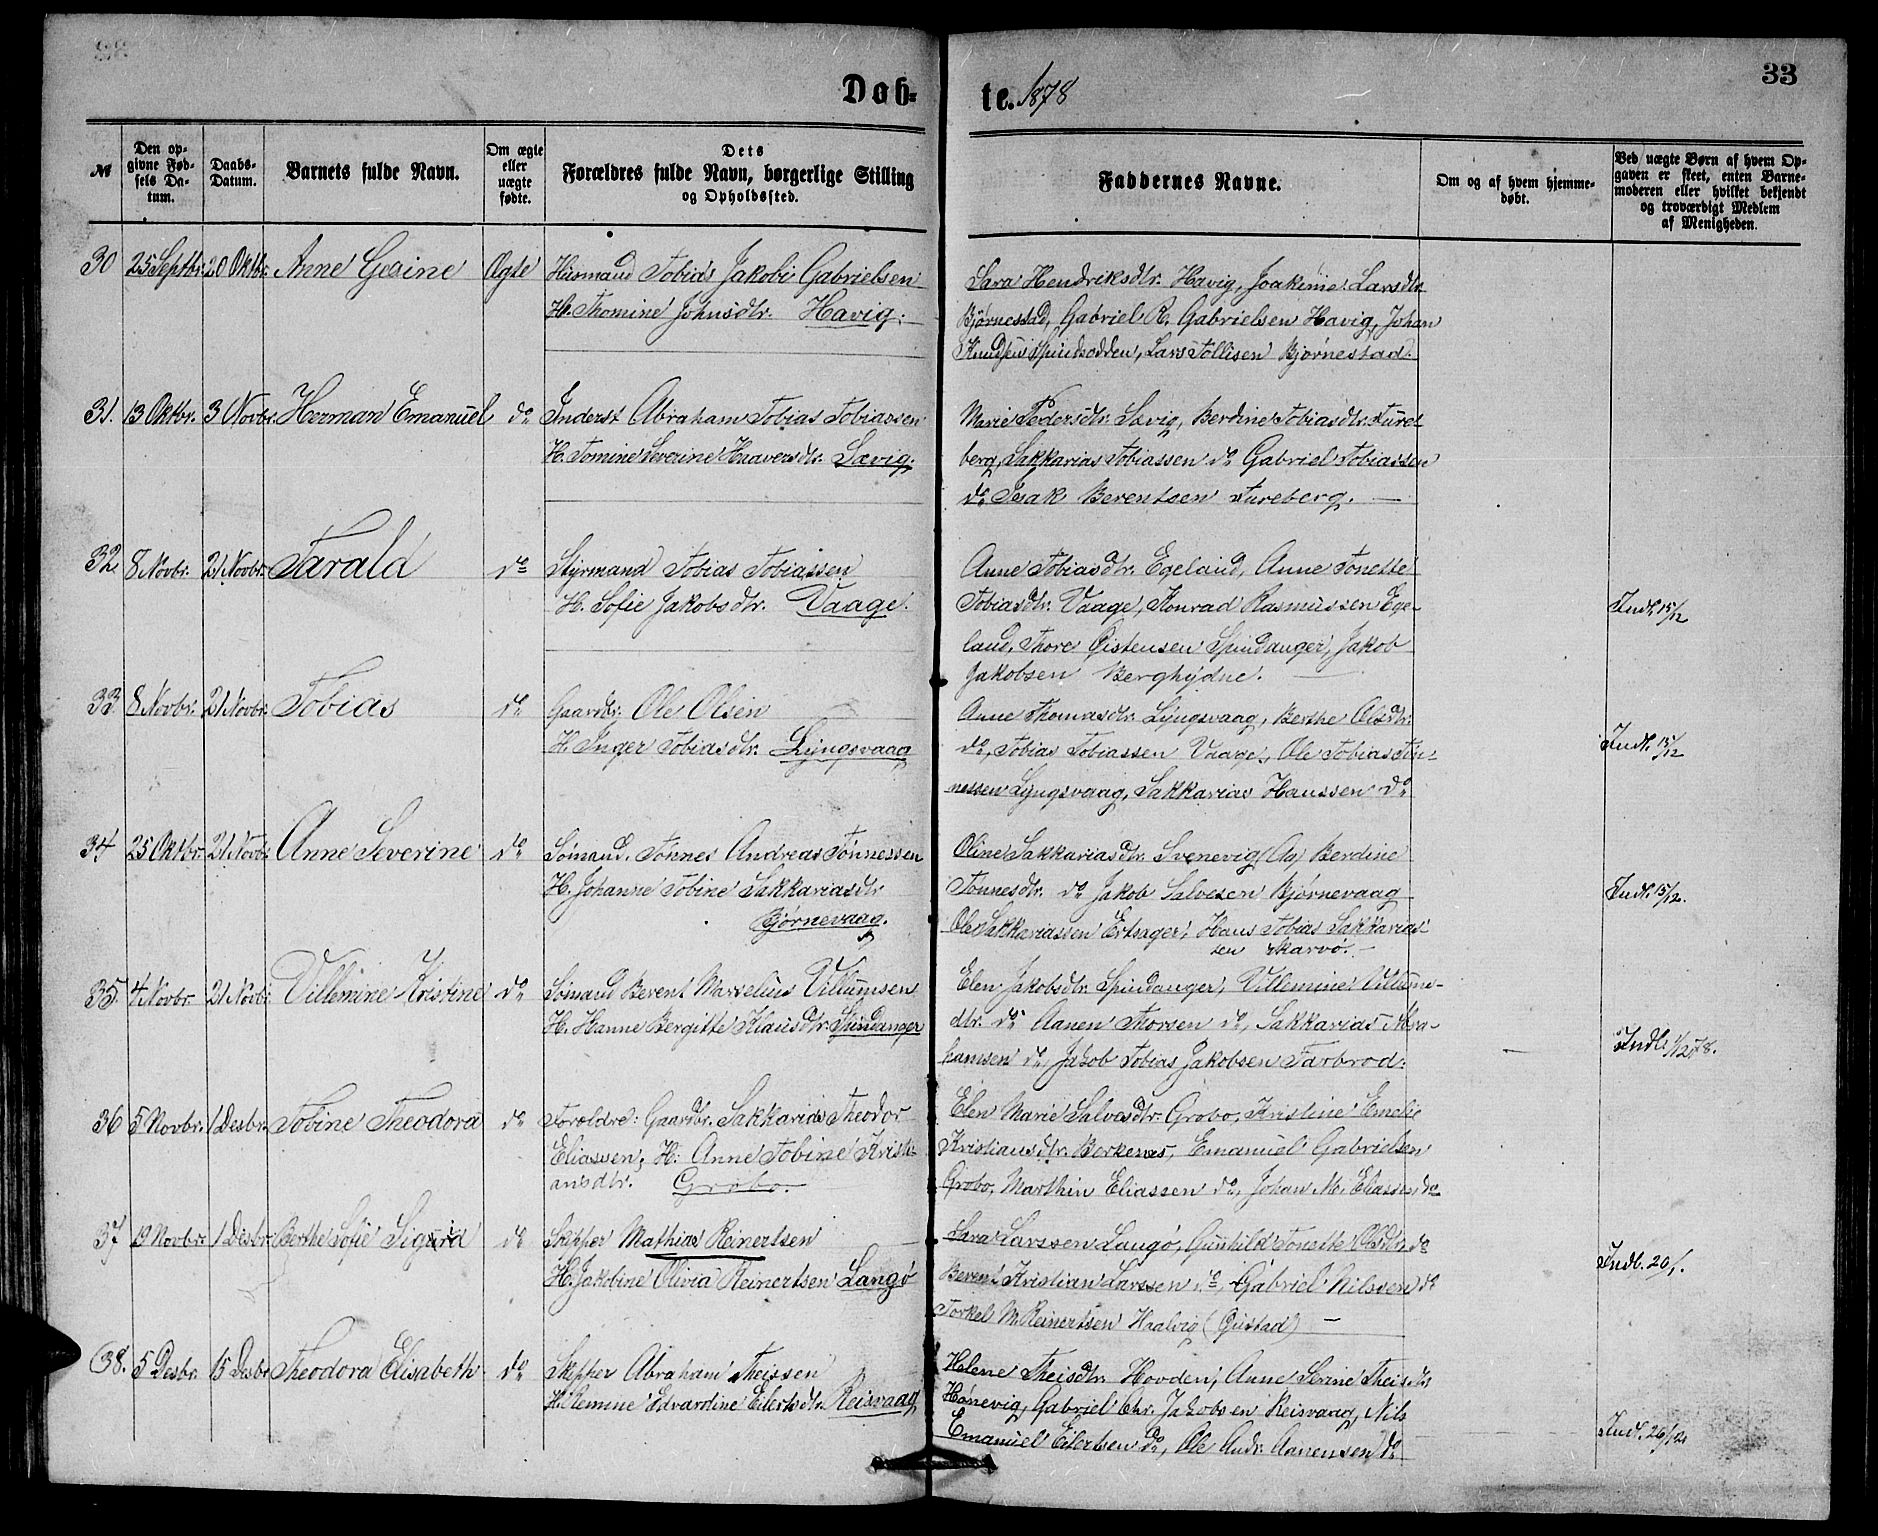 33
Døb-
te. 1878
№
Den op-
givne Fød-
sels Da-
tum.
Daabs-
Datum.
Barnets fulde Navn.
Om ægte
eller
uægte
fødte.
Dets
Forældres fulde Navn, borgerlige Stilling
og Opholdssted.
Faddernes Navne.
Om og af hvem hjemme-
døbt.
Ved uægte Børn af hvem Op-
gaven er skeet, enten Barne-
moderen eller hvilket bekjendt
og troværdigt Medlem
af Menigheden.
30 25 Septbr. 20 Oktbr. Anne Gesine Ægte Husmand Tobias Jakobi Gabrielsen
H. Thomine Johnsdtr. Havig.
Sara Hendriksdtr. Havig, Joakime Larsdtr.
Bjørnestad, Gabriel R. Gabrielsen Havig, Johan
Knudsen Spindsodden, Lars Tollisen Bjørnestad.
31. 13 Oktbr. 3 Novbr. Herman Emanuel do Inderst Abraham Tobias Tobiassen
H. Tomine Severine Haaversdtr. Sævig.
Marie Pedersdtr. Sævig, Berdine Tobiasdtr. Ture-
berg, Sakkarias Tobiassen do Gabriel Tobiassen
do Isak Berentsen Tureberg.
32. 8 Novbr. 21 Novbr. Tarald do Styrmand Tobias Tobiassen
H. Sofie Jakobsdtr. Vaage.
Anne Tobiasdtr. Egeland, Anne Tonette
Tobiasdtr. Vaage, Konrad Rasmussen Ege-
land, Thore Øistensen Spindanger, Jakob
Jakobsen Berghydne.
Indl. 15/12
33. 8 Novbr. 21 Novbr. Tobias do Gaardbr. Ole Olsen
H. Inger Tobiasdtr. Lyngsvaag
Anne Thomasdtr. Lyngsvaag, Berthe Olsdtr.
do, Tobias Tobiassen Vaage, Ole Tobias Tøn-
nessen Lyngsvaag, Sakkarias Hanssen do
Indl. 15/12
34 25 Oktbr. 21 Novbr. Anne Severine do Sømand. Tønnes Andreas Tønnessen
H. Johanne Tobine Sakkariasdtr.
Bjørnevaag.
Oline Sakkariasdtr. Svenevig (Ag) Berdine
Tønnesdtr. do Jakob Salvesen Bjørnevaag
Ole Sakkariassen Ertsager, Hans Tobias Sakkarias-
sen Skarvø.
Indl. 15/12.
35. 4 Novbr. 21 Novbr. Villemine Kristine do Sømand Berent Marselius Villumsen
H. Hanne Bergitte Klausdtr. Spindanger
Elen Jakobsdtr. Spindanger, Villemine Villums-
dtr. do Aanen Thorsen do, Sakkarias Abra-
hamsen do, Jakob Tobias Jakobsen Farbrod.
Indl. 1/12 78.
36 5 Novbr. 1 Desbr. Tobine Theodora do Foreldre: Gaardbr. Sakkarias Theodor
Eliassen, H: Anne Tobine Kristi-
ansdtr. Grobo.
Elen Marie Salvesdtr. Grobo, Kristine Emelie
Kristiansdtr. Berkenes, Emanuel Gabrielsen
Grobo, Marthin Eliassen do, Johan M. Eliassen do
37 19 Novbr. 1 Desbr. Berthe Sofie Sigurd do Skipper Mathias Reinertsen
H. Jakobine Olivia Reinertsen Langø
Sara Larssen Langø, Gunhild Tonette Olsdtr. do
Berent Kristian Larssen do, Gabriel Nilssen do
Torkel M. Reinertsen Haalvig (Gustad)
Indl. 20/1.
38. 5 Desbr. 15 Desbr. Theodora Elisabeth do Skipper Abraham Theissen
H. Edvardine Eilertsdtr. Reisvaag
Helene Theisdtr. Hovden, Anne Serine Theisdtr.
Hønevig, Gabriel Chr. Jakobsen Reisvaag, Nils
Emanuel Eilertsen do, Ole Andr. Aanensen do
Indl. 26/12